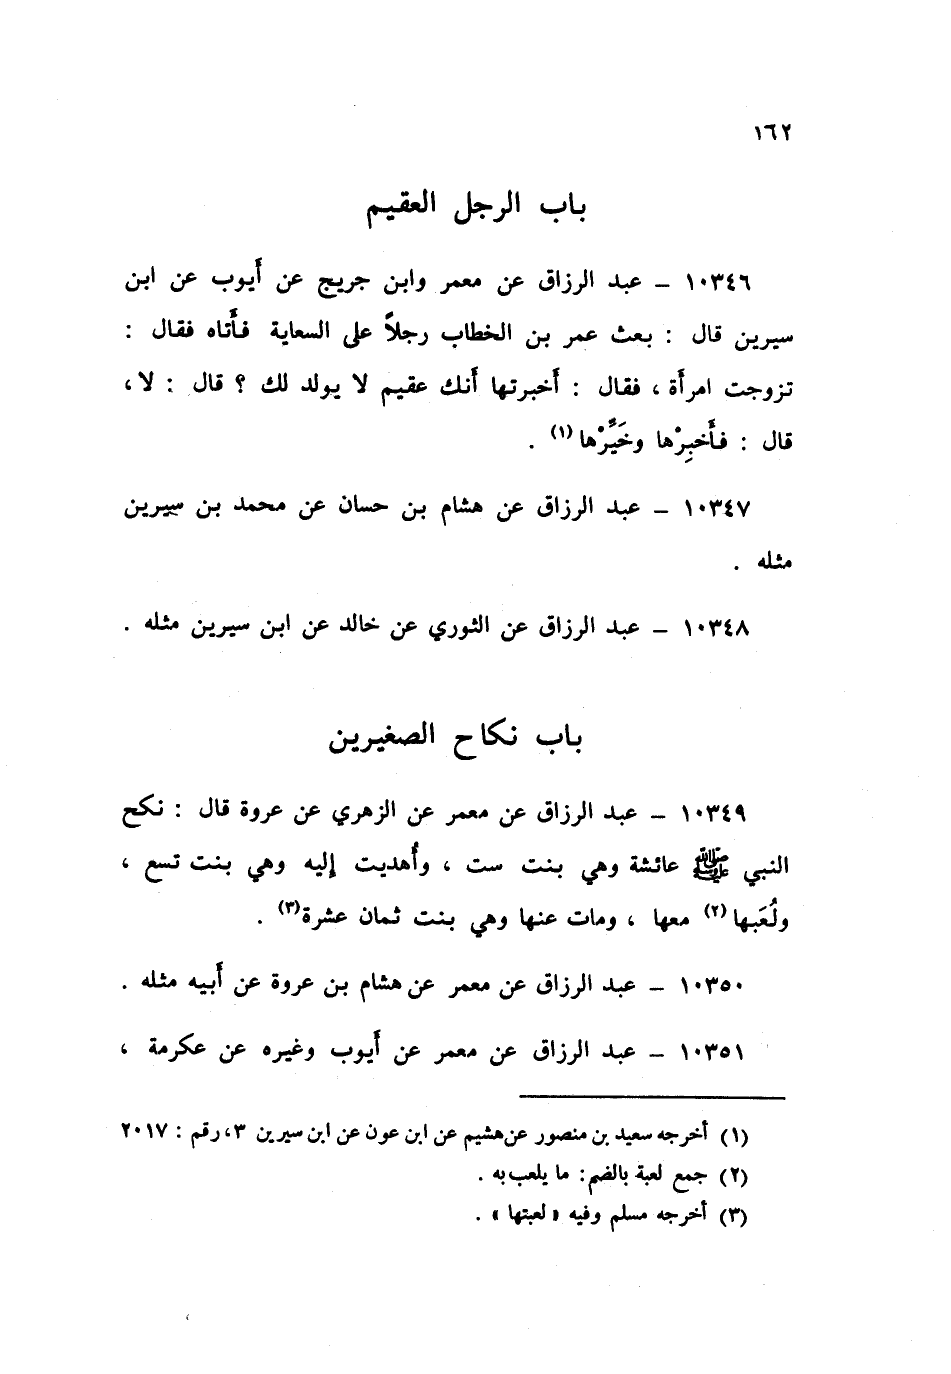 ١٦٢
باب الرجل العقيم
١٠٣٤٦ – عبد الرزاق عن معمر وابن جريج عن أَيوب عن ابن
سيرين قال : بعث عمر بن الخطاب رجلاً على السعاية فأَتاه فقال :
تزوجت امرأَة ، فقال : أَخبرتها أَنك عقيم لا يولد لك ؟ قال : لا ،
قال : فأَخبِرْها وخَيِّرْها (١) .
١٠٣٤٧ – عبد الرزاق عن هشام بن حسان عن محمد بن سيرين
مثله .
١٠٣٤٨ – عبد الرزاق عن الثوري عن خالد عن ابن سيرين مثله .
باب نكاح الصغيرين
١٠٣٤٩ – عبد الرزاق عن معمر عن الزهري عن عروة قال : نكح
النبي ﷺ عائشة وهي بنت ست ، وأُهديت إليه وهي بنت تسع ،
ولُعَبها (٢) معها ، ومات عنها وهي بنت ثمان عشرة (٣) .
١٠٣٥٠ – عبد الرزاق عن معمر عن هشام بن عروة عن أَبيه مثله .
١٠٣٥١ – عبد الرزاق عن معمر عن أَيوب وغيره عن عكرمة ،
(١) أخرجه سعيد بن منصور عن هشيم عن ابن عون عن ابن سيرين ٣، رقم : ٢٠١٧
(٢) جمع لعبة بالضم : ما يلعب به .
(٣) أخرجه مسلم وفيه « لعبتها » .